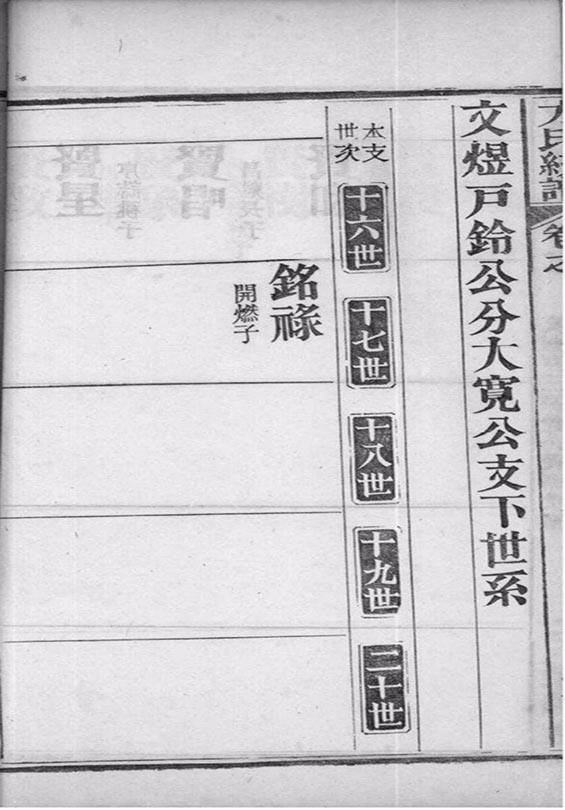 文煜戶鈴公分大寬公支下世系
本支
世次
十六世
十七世
十八世
十九世
二十世
銘祿
開燃子